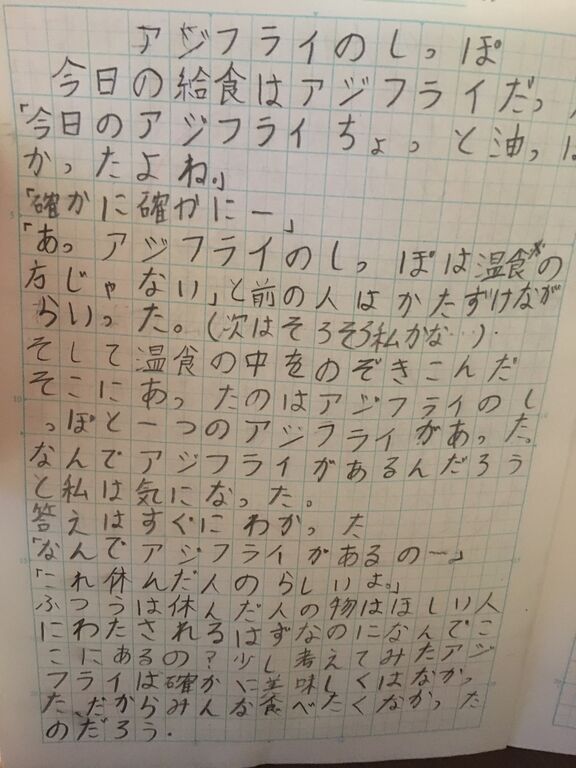 アジフライのしっぽ
今日の給食はアジフライだっ
「今日のアジフライちょっと油っぽ
かったよね。」
「確かに確かにー」
「あっアジフライのしっぽは温食*の
方じゃない」と前の人はかたずけなが
らいった。(次はそろそろ私かな…)
そして温食の中をのぞきこんだ
そこにあったのはアジフライのし
っぽと一つのアジフライがあった。
なんでアジフライがあるんだろう
と私は気になった。
答えはすぐにわかった
「なんでアジフライがあるのー」
「これ休んだ人のらしいよ。」
ふつうは休んだ人の物はほしい人
にわたされるはずなのになんでこ
こにあるの?少し考えてみたアジ
フライは確かに美味しくはなかっ
た、だからみんな食べたくなかった
のだろう.